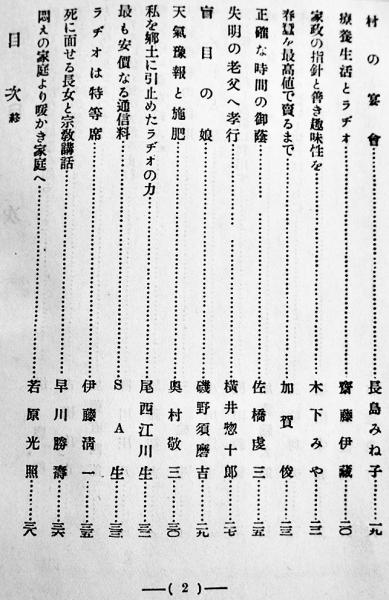 村の宴會……長島みね子……一九
療養生活とラヂオ……齋藤伊藏……二〇
家政の指針と善き趣味性を……木下みや……二二
春蠶を最高値で賣るまで……加賀俊……二三
正確な時間の御蔭……佐橋虔三……二五
失明の老父へ孝行……横井惣十郎……二七
盲目の娘……磯野須磨吉……二九
天氣豫報と施肥……奥村敬三……三〇
私を鄕土に引止めたラヂオの力……尾西江川生……三二
最も安價なる通信料……SA生……三三
ラヂオは特等席……伊藤淸一……三五
死に面せる長女と宗敎講話……早川勝壽……三六
悶えの家庭より暖かき家庭へ……若原光照……三八
目次終
―( 2 )―